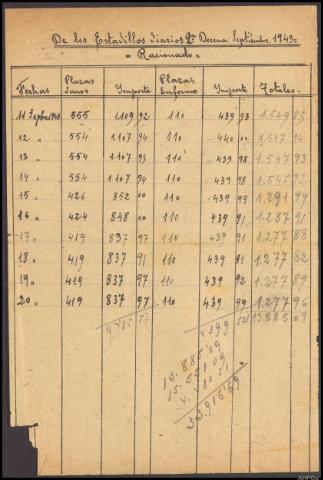 De los Estadillos diarios 2ª Decena Septiembre 1943=
= Racionado =
Fechas Plazas Sanos Importe Plazas Enfermo Importe Totales.
11 Sepbre 1943 555 1.109 92 110 439 93 1.549 85
12 " 554 1.107 94 110 440 00 1.547 94
13 " 554 1.107 95 110 439 98 1.547 93
14 " 554 1.107 94 110 439 98 1.547 92
15 " 426 852 00 110 439 99 1.291 99
16 " 424 848 00 110 439 91 1.287 91
17 " 419 837 97 110 439 91 1.277 88
18 " 419 837 91 110 439 91 1.277 82
19 " 419 837 97 110 439 92 1.277 89
20 " 419 837 97 110 439 99 1.277 96
9.485 57 4399 52 13.885 09
13.885'09
15.551 09
4.480 51
33.916'69